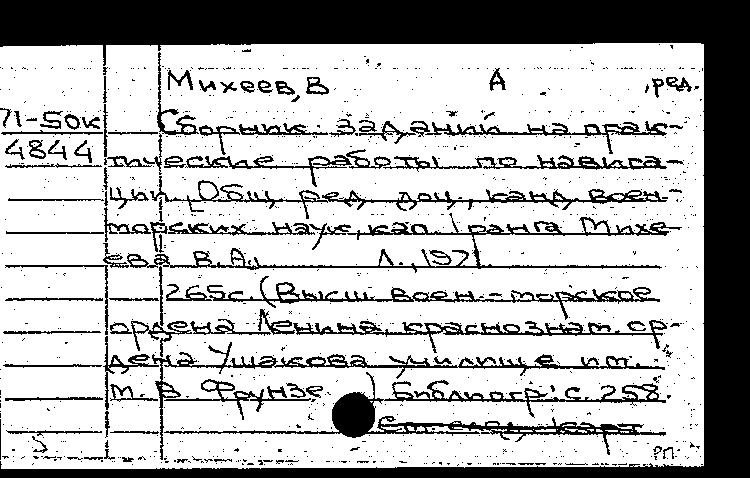 Михеев, В А , ред.
71-50к Сборник заданий на прак-
4844 тические работы по навига-
ции. Общ. ред. доц., канд. воен.-
морских наук, кап. 1 ранга Михе-
ева В.А. Л., 1971
265с. (Высш. воен.-морское
ордена Ленина, краснознам. ор-
дена Ушакова училище им.
М. В Фрунзе ) Библиогр: с. 258.
См. след. карт
5 РП